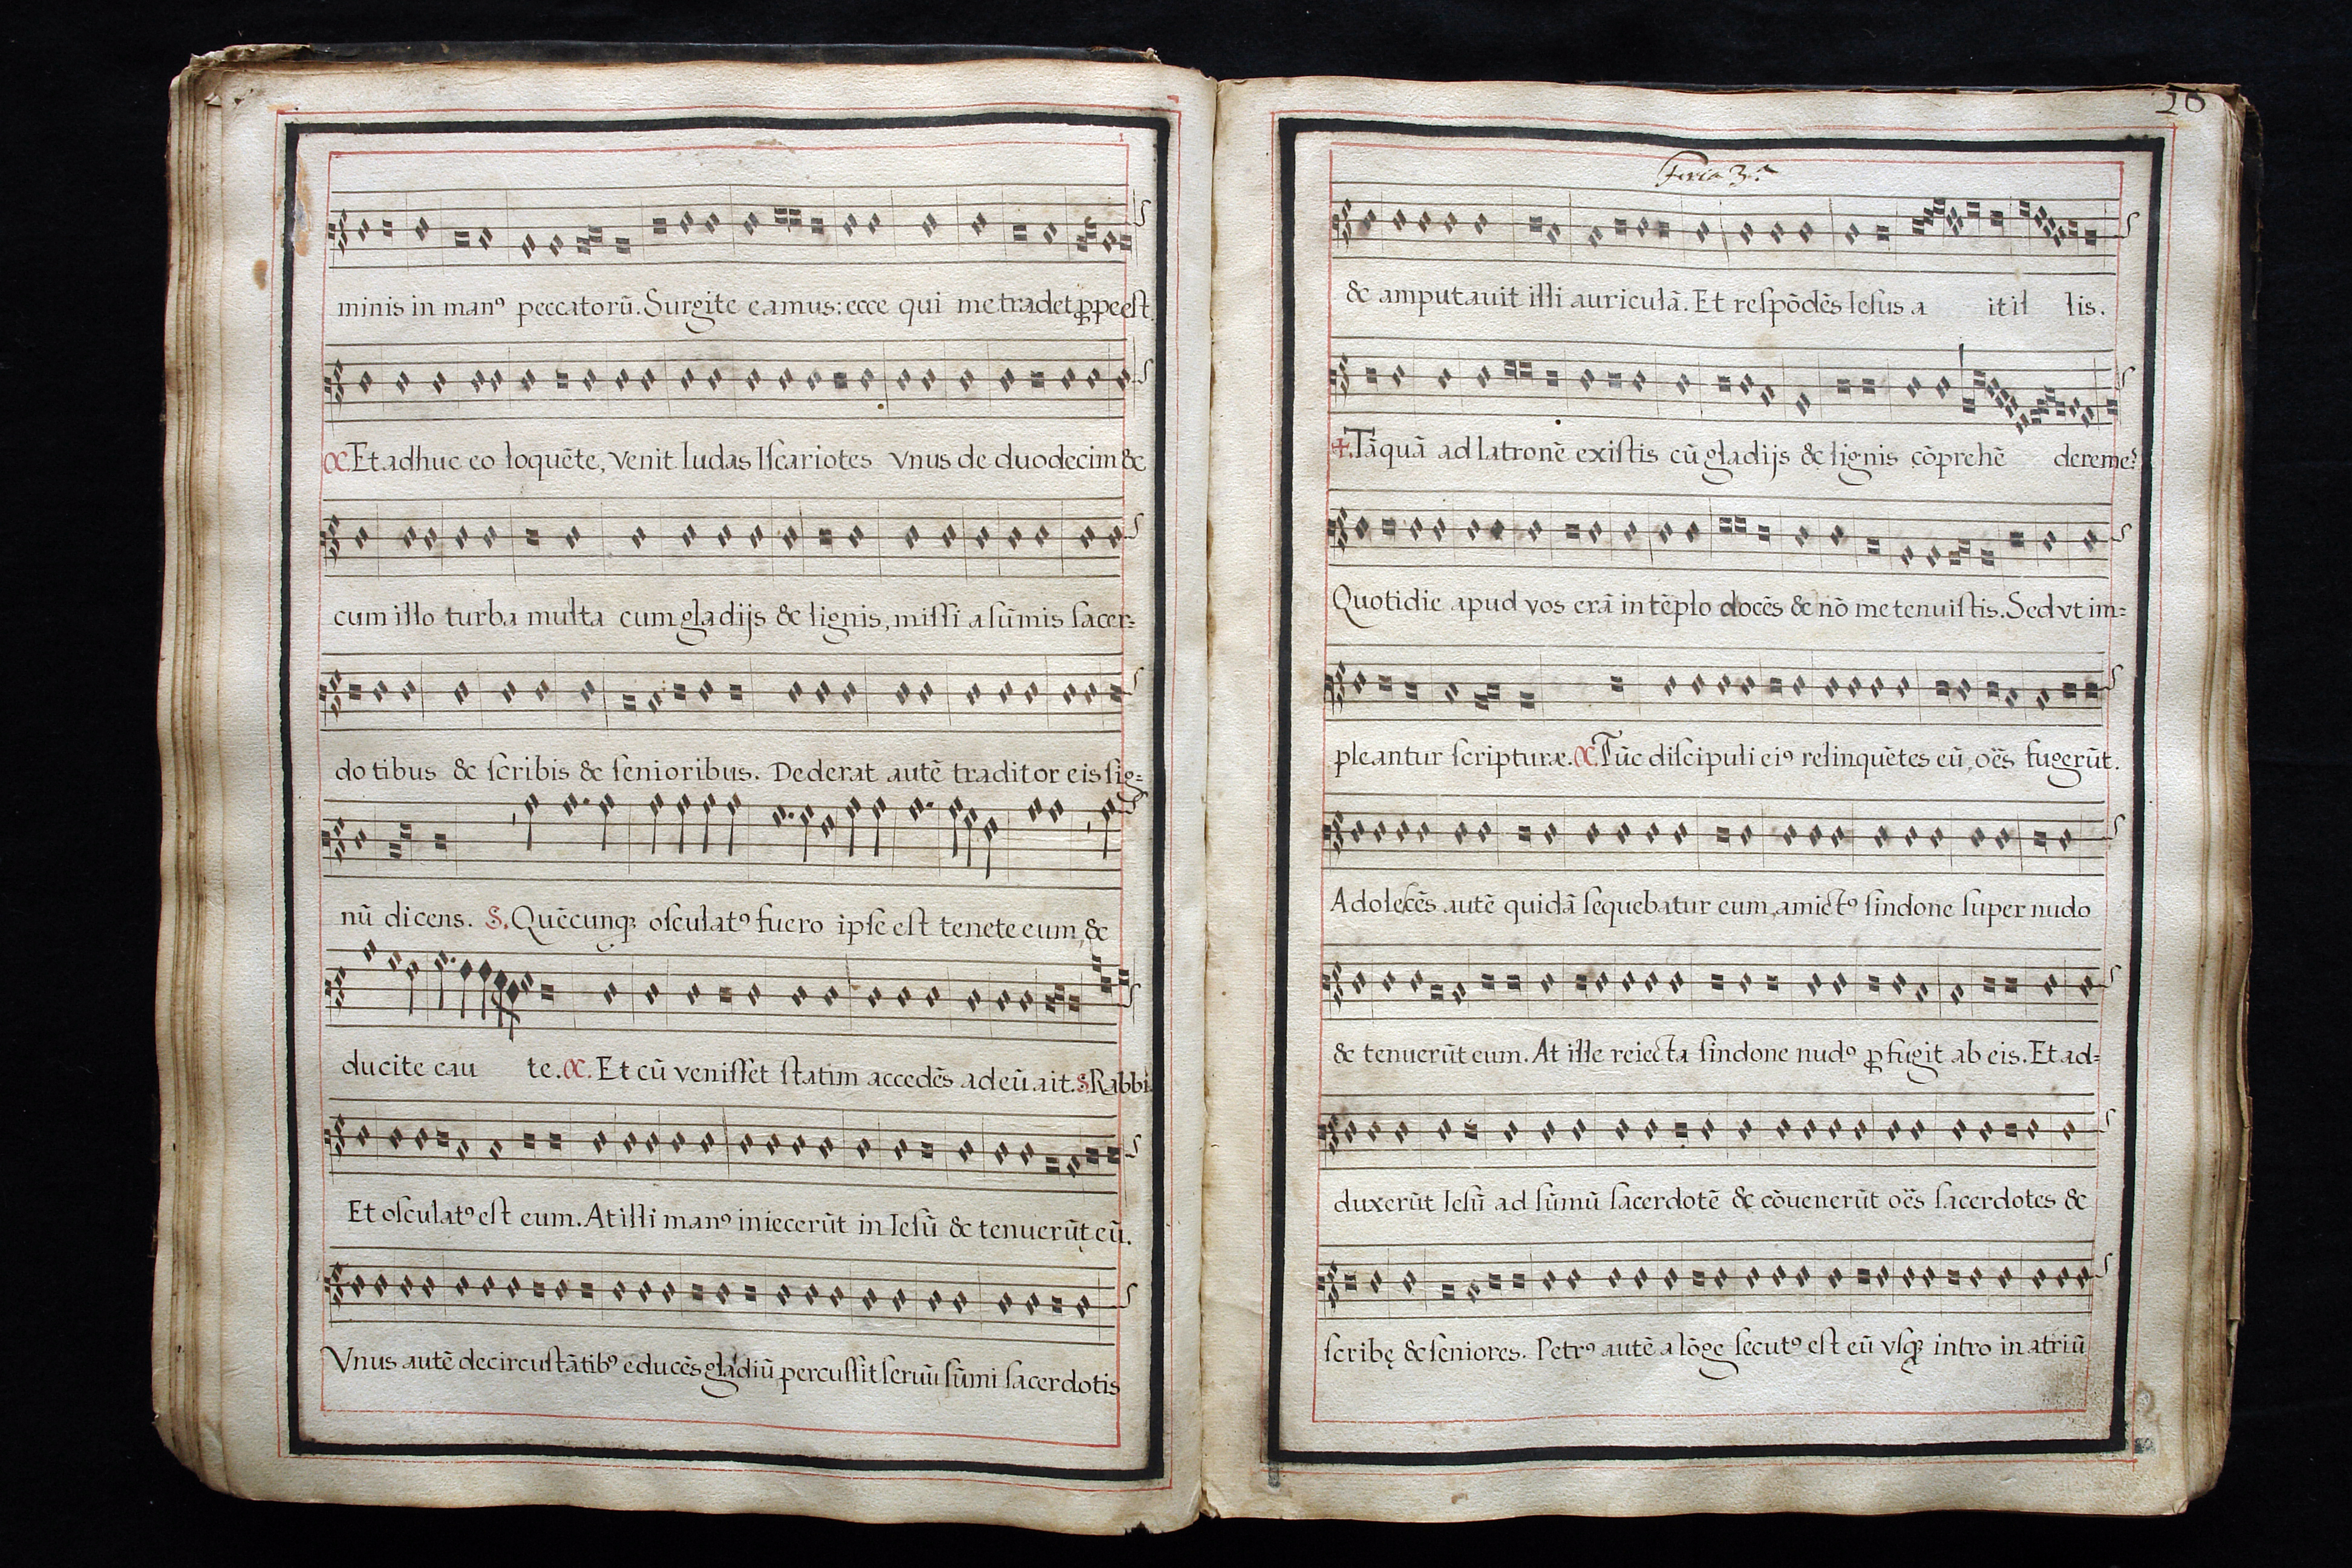 minis in manꝰ peccatorū. Surgite eamus: ecce qui me tradet ꝓpe eſt.
C. Et adhuc eo loquēte, venit Iudas Iſcariotes vnus de duodecim &
cum illo turba multa cum gladijs & lignis, miſſi a ſūmis ſacer=
dotibus & ſcribis & ſenioribus. Dederat autē traditor eis ſig=
nū dicens. S. Quēcunqꝫ oſculatꝰ fuero ipſe eſt tenete eum, &
ducite cau te. C. Et cū veniſſet ſtatim accedēs ad eū ait. S. Rabbi.
Et oſculatꝰ eſt eum. At illi manꝰ iniecerūt in Ieſū & tenuerūt eū.
Vnus autē de circuſtātibꝰ educēs gladiū percuſſit ſeruū ſūmi ſacerdotis
Feria 3.ª
& amputauit illi auriculā. Et reſpōdēs Ieſus a it il lis.
✝. Tāquā ad latronē exiſtis cū gladijs & lignis cōprehē dere me?
Quotidie apud vos erā in tēplo docēs & nō me tenuiſtis. Sed vt im=
pleantur ſcripturæ. C. Tūc diſcipuli eiꝰ relinquētes eū, oēs fugerūt.
Adoleſcēs autē quidā ſequebatur eum, amictꝰ ſindone ſuper nudo
& tenuerūt eum. At ille reiecta ſindone nudꝰ ꝓfugit ab eis. Et ad=
duxerūt Ieſū ad ſūmū ſacerdotē & cōuenerūt oēs ſacerdotes &
ſcribę & ſeniores. Petrꝰ autē a lōge ſecutꝰ eſt eū vſqꝫ intro in atriū